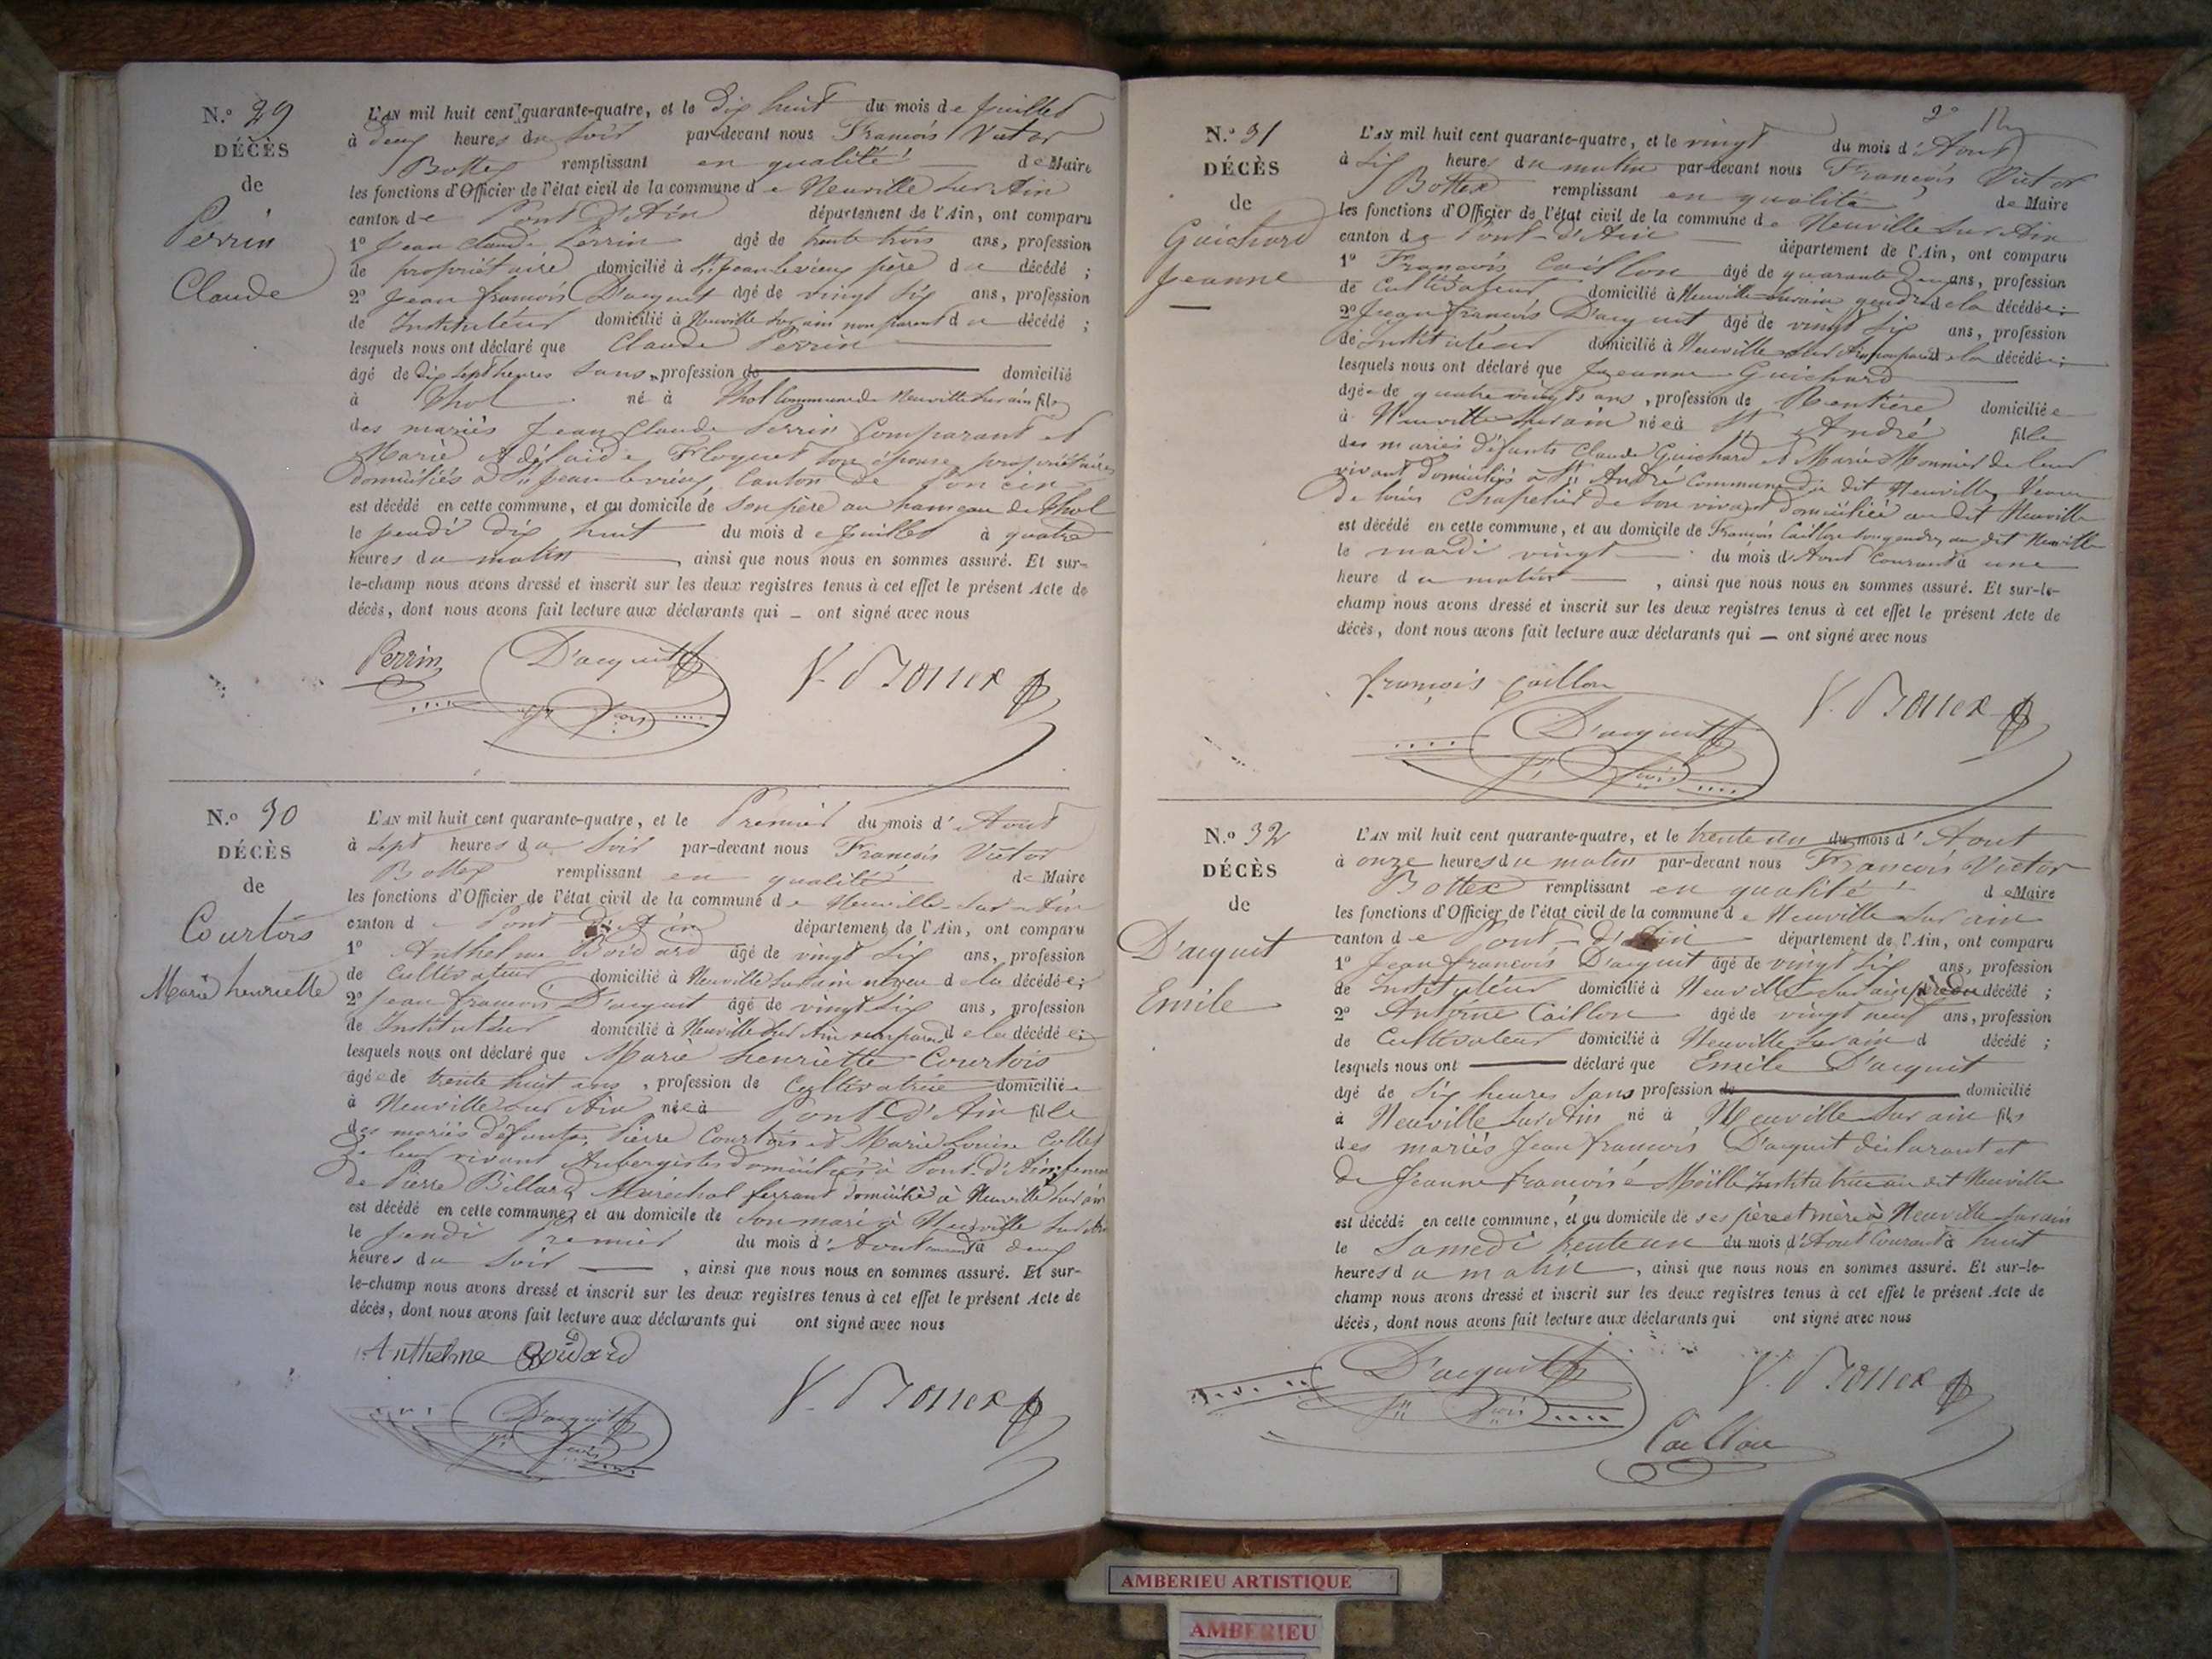 N.o 29
DÉCÈS
de
Perrin
Claude
L'AN mil huit cent quarante-quatre, et le Dix huit du mois de juillet
à deux heures du soir par-devant nous François Victor
Bottex remplissant en qualité de Maire
les fonctions d'Officier de l'état civil de la commune de Neuville sur Ain
canton de Pont D'Ain département de l'Ain, ont comparu
1o Jean Claude Perrin âgé de trente trois ans, profession
de propriétaire domicilié à St. Jean le vieux père du décédé ;
2o Jean françois D'acquit âgé de vingt six ans, profession
de Instituteur domicilié à Neuville sur ain non parent du décédé ;
lesquels nous ont déclaré que Claude Perrin
âgé de dix sept heures Sans profession de domicilié
à Thol né à Thol Commune de Neuville sur ain fils
des mariés Jean Claude Perrin Comparant et
Marie Adélaide Floquet son épouse propriétaires
domiciliés à St Jean le vieux, Canton de Poncin
est décédé en cette commune, et au domicile de son père au hameau de Thol
le jeudi dix huit du mois de juillet à quatre
heures du matin , ainsi que nous nous en sommes assuré. Et sur-
le-champ nous avons dressé et inscrit sur les deux registres tenus à cet effet le présent Acte de
décès, dont nous avons fait lecture aux déclarants qui – ont signé avec nous
Perrin D'acquit V. Bottex
N.o 30
DÉCÈS
de
Courtois
Marie henriette
L'AN mil huit cent quarante-quatre, et le Premier du mois d'Aout
à sept heures du soir par-devant nous François Victor
Bottex remplissant en qualité de Maire
les fonctions d'Officier de l'état civil de la commune de Neuville sur Ain
canton de Pont D'Ain département de l'Ain, ont comparu
1o Anthelme Boidard âgé de vingt six ans, profession
de Cultivateur domicilié à Neuville sur ain neveu de la décédée ;
2o Jean françois D'acquit âgé de vingt six ans, profession
de Instituteur domicilié à Neuville sur Ain non parent de la décédée ;
lesquels nous ont déclaré que Marie henriette Courtois
âgée de trente huit ans , profession de Cultivatrice domiciliée
à Neuville sur Ain née à Pont D'Ain fille
des mariés défunts, Pierre Courtois et Marie Louise Collet
de leur vivant Aubergistes domiciliés à Pont-d'Ain, femme
de Pierre Billard, Maréchal ferrant domicilié à Neuville sur ain
est décédé en cette commune, et au domicile de son mari à Neuville sur Ain
le Jeudi Premier du mois d'Aout courant à deux
heures du Soir , ainsi que nous nous en sommes assuré. Et sur-
le-champ nous avons dressé et inscrit sur les deux registres tenus à cet effet le présent Acte de
décès, dont nous avons fait lecture aux déclarants qui ont signé avec nous
Anthelme Boidard
D'acquit V. Bottex
N.o 31
DÉCÈS
de
Guichard
Jeanne
L'AN mil huit cent quarante-quatre, et le vingt du mois d'Aout
à six heures du matin par-devant nous François Victor
Bottex remplissant en qualité de Maire
les fonctions d'Officier de l'état civil de la commune de Neuville sur Ain
canton de Pont-d'Ain département de l'Ain, ont comparu
1o François Caillon âgé de quarante deux ans, profession
de Cultivateur domicilié à Neuville sur ain gendre de la décédée ;
2o Jean françois D'acquit âgé de vingt six ans, profession
de Instituteur domicilié à Neuville sur Ain non parent de la décédée ;
lesquels nous ont déclaré que Jeanne Guichard
âgée de quatre vingts ans , profession de Rentière domiciliée
à Neuville sur ain née à St André fille
des mariés défunts Claude Guichard et Marie Monnier de leur
vivant domiciliés à St. André Commune du dit Neuville, Veuve
de Louis Chapelier de son vivant domicilié au dit Neuville
est décédé en cette commune, et au domicile de François Caillon son gendre, au dit Neuville
le mardi vingt du mois d'Aout Courant à une
heure du matin , ainsi que nous nous en sommes assuré. Et sur-le-
champ nous avons dressé et inscrit sur les deux registres tenus à cet effet le présent Acte de
décès, dont nous avons fait lecture aux déclarants qui – ont signé avec nous
françois Caillon
D'acquit V. Bottex
N.o 32
DÉCÈS
de
D'acquit
Emile
L'AN mil huit cent quarante-quatre, et le trente un du mois d'Aout
à onze heures du matin par-devant nous François Victor
Bottex remplissant en qualité de Maire
les fonctions d'Officier de l'état civil de la commune de Neuville sur ain
canton de Pont-d'Ain département de l'Ain, ont comparu
1o Jean françois D'acquit âgé de vingt six ans, profession
de Instituteur domicilié à Neuville sur ain père du décédé ;
2o Antoine Caillon âgé de vingt neuf ans, profession
de Cultivateur domicilié à Neuville sur ain d décédé ;
lesquels nous ont déclaré que Emile D'acquit
âgé de six heures Sans profession de domicilié
à Neuville sur Ain né à Neuville sur ain fils
des mariés Jean françois D'acquit déclarant et
de Jeanne françoise Institutrice au dit Neuville
est décédé en cette commune, et au domicile de ses père et mère à Neuville sur ain
le Samedi trente un du mois d'Aout Courant à huit
heures du matin , ainsi que nous nous en sommes assuré. Et sur-le-
champ nous avons dressé et inscrit sur les deux registres tenus à cet effet le présent Acte de
décès, dont nous avons fait lecture aux déclarants qui ont signé avec nous
D'acquit V. Bottex
Caillon
AMBERIEU ARTISTIQUE
AMBERIEU